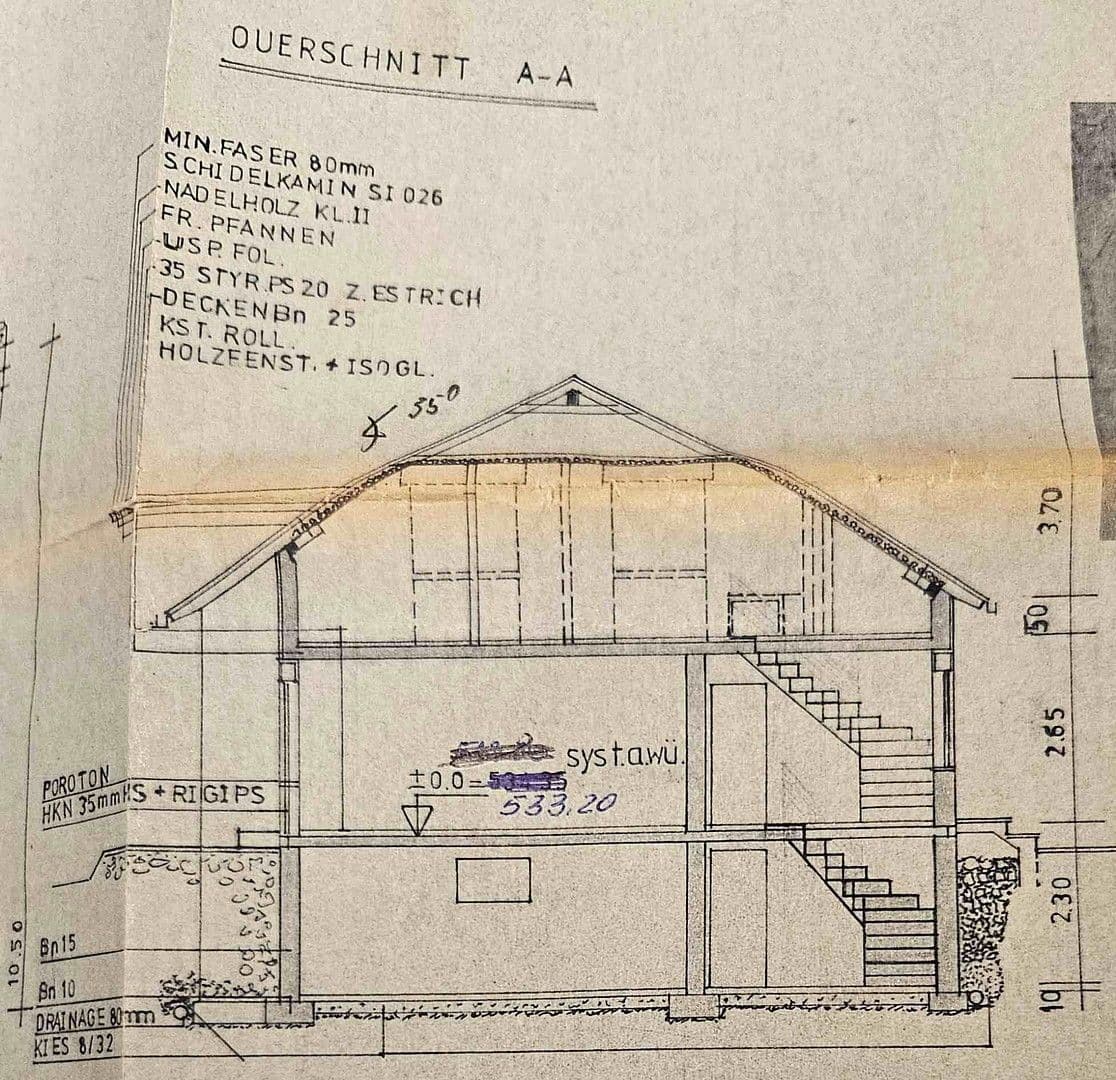 QUERSCHNITT A-A
MIN.FASER 80mm
SCHIDELKAMIN SI 026
NADELHOLZ KL.II
FR. PFANNEN
USP. FOL.
35 STYR.PS 20 Z.ESTRICH
DECKEN Bn 25
KST. ROLL.
HOLZFENST. + ISOGL.
35°
3.70
50
syst.a.wü.
±0.0=
533.20
2.65
POROTON
HKN 35mm HS + RIGIPS
2.30
10.50
Bn 15
Bn 10
10
DRAINAGE 80mm
KIES 8/32